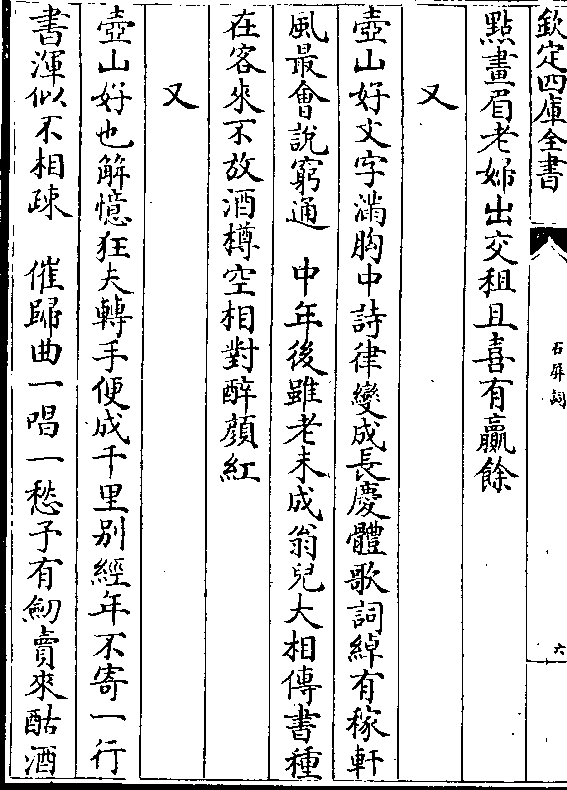 欽定四庫全書
石屏詞
六
點畫眉老婦出交租且喜有贏餘
又
壺山好文字滿胸中詩律變成長慶體歌詞綽有稼軒
風最會說窮通　中年後雖老未成翁兒大相傳書種
在客來不放酒樽空相對醉顔紅
又
壺山好也解憶狂夫轉手便成千里别經年不寄一行
書渾似不相疎　催歸曲一唱一愁予有劒賣來酤酒